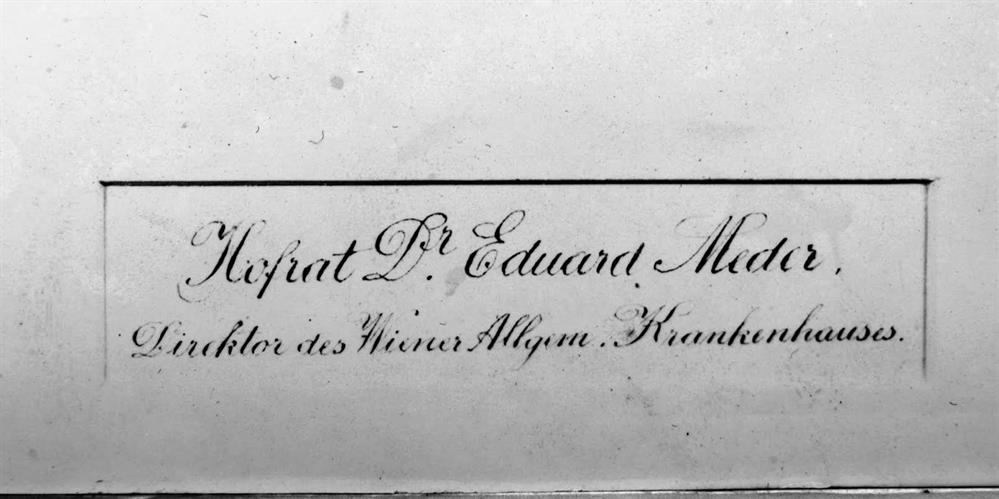 Hofrat Dr. Eduard Meder.
Direktor des Wiener Allgem. Krankenhauses.